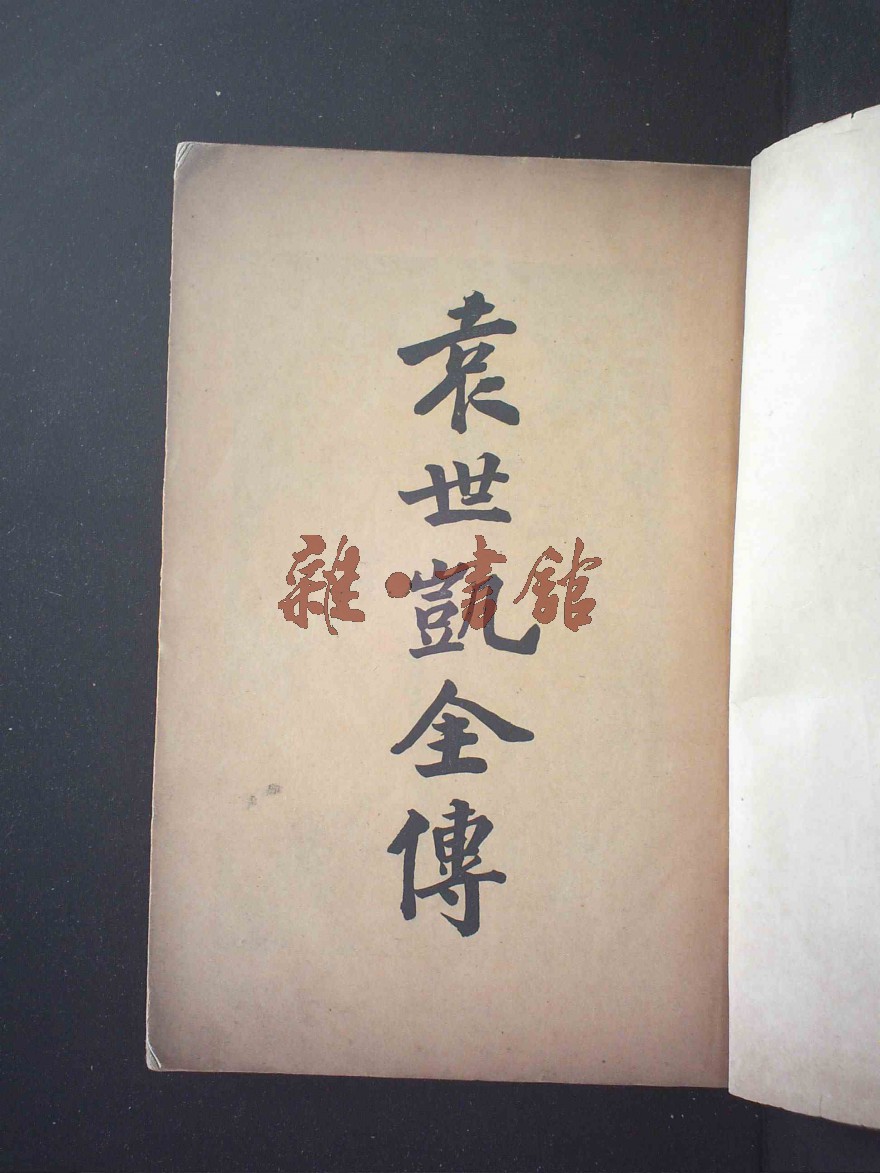 袁世凱全傳
雜·書館